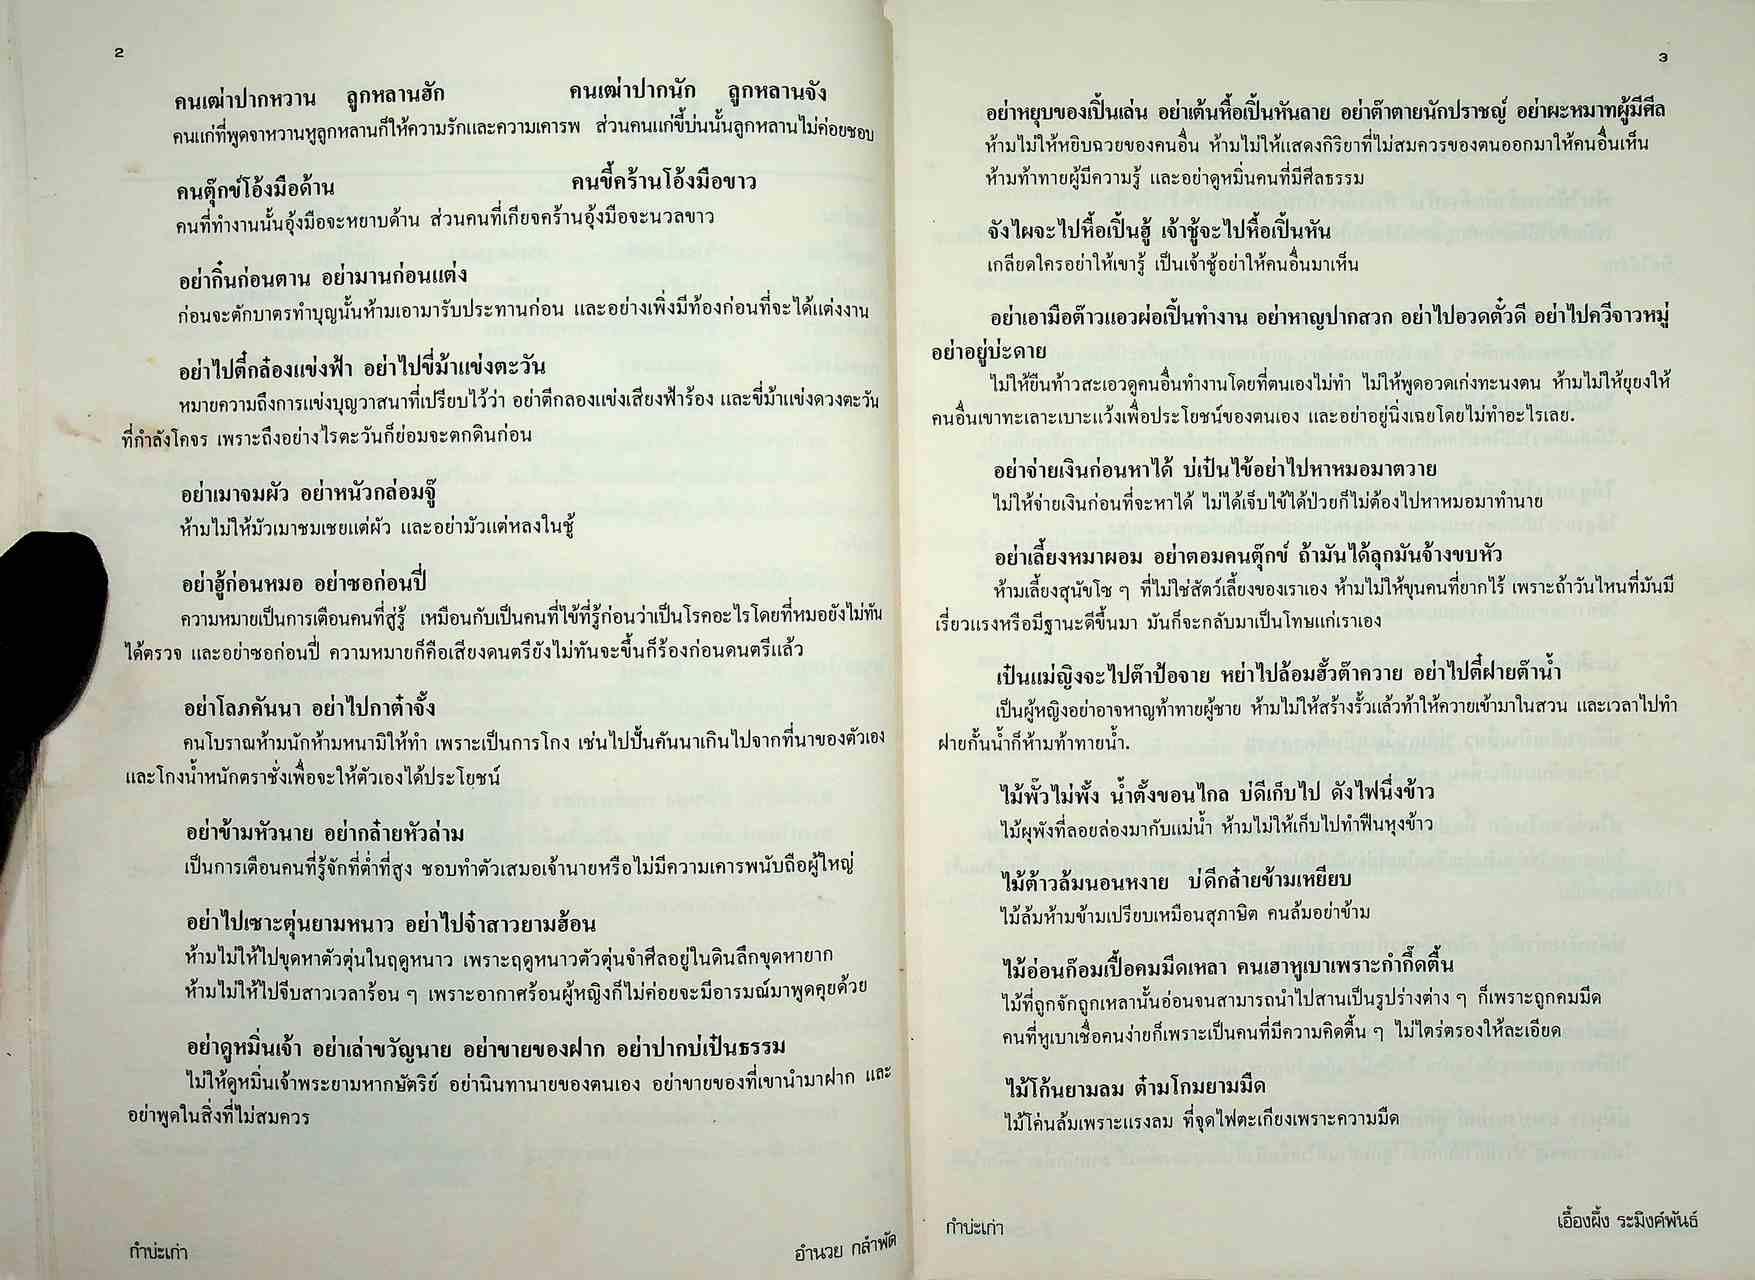 2
คนเฒ่าปากหวาน ลูกหลานฮัก คนเฒ่าปากนัก ลูกหลานจัง
คนแก่ที่พูดจาหวานหูลูกหลานก็ให้ความรักและความเคารพ ส่วนคนแก่ขี้บ่นนั้นลูกหลานไม่ค่อยชอบ
คนตุ๊กข์โอ้งมือด้าน คนขี้คร้านโอ้งมือขาว
คนที่ทำงานนั้นอุ้งมือจะหยาบด้าน ส่วนคนที่เกียจคร้านอุ้งมือจะนวลขาว
อย่ากิ๋นก่อนตาน อย่ามานก่อนแต่ง
ก่อนจะตักบาตรทำบุญนั้นห้ามเอามารับประทานก่อน และอย่างเพิ่งมีท้องก่อนที่จะได้แต่งงาน
อย่าไปตี๋กล๋องแข่งฟ้า อย่าไปขี่ม้าแข่งตะวัน
หมายความถึงการแข่งบุญวาสนาที่เปรียบไว้ว่า อย่าตีกลองแข่งเสียงฟ้าร้อง และขี่ม้าแข่งดวงตะวัน
ที่กำลังโคจร เพราะถึงอย่างไรตะวันก็ย่อมจะตกดินก่อน
อย่าเมาจมผัว อย่าหนัวกล่อมจู๊
ห้ามไม่ให้มัวเมาชมเชยแต่ผัว และอย่ามัวแต่หลงในชู้
อย่าฮู้ก่อนหมอ อย่าซอก่อนปี่
ความหมายเป็นการเตือนคนที่สู่รู้ เหมือนกับเป็นคนที่ไข้ที่รู้ก่อนว่าเป็นโรคอะไรโดยที่หมอยังไม่ทัน
ได้ตรวจ และอย่าซอก่อนปี่ ความหมายก็คือเสียงดนตรียังไม่ทันจะขึ้นก็ร้องก่อนดนตรีแล้ว
อย่าโลภคันนา อย่าไปกาต๋าจั้ง
คนโบราณห้ามนักห้ามหนามิให้ทำ เพราะเป็นการโกง เช่นไปปั้นคันนาเกินไปจากที่นาของตัวเอง
และโกงน้ำหนักตราชั่งเพื่อจะให้ตัวเองได้ประโยชน์
อย่าข้ามหัวนาย อย่ากล๋ายหัวล่าม
เป็นการเตือนคนที่รู้จักที่ต่ำที่สูง ชอบทำตัวเสมอเจ้านายหรือไม่มีความเคารพนับถือผู้ใหญ่
อย่าไปเซาะตุ่นยามหนาว อย่าไปจ๋าสาวยามฮ้อน
ห้ามไม่ให้ไปขุดหาตัวตุ่นในฤดูหนาว เพราะฤดูหนาวตัวตุ่นจำศีลอยู่ในดินลึกขุดหายาก
ห้ามไม่ให้ไปจีบสาวเวลาร้อน ๆ เพราะอากาศร้อนผู้หญิงก็ไม่ค่อยจะมีอารมณ์มาพูดคุยด้วย
อย่าดูหมิ่นเจ้า อย่าเล่าขวัญนาย อย่าขายของฝาก อย่าปากบ่เป๋นธรรม
ไม่ให้ดูหมิ่นเจ้าพระยามหากษัตริย์ อย่านินทานายของตนเอง อย่าขายของที่เขานำมาฝาก และ
อย่าพูดในสิ่งที่ไม่สมควร
กำบ่ะเก่า อำนวย กลำพัด
3
อย่าหยุบของเปิ้นเล่น อย่าเต้นหื้อเปิ้นหันลาย อย่าต๊าตายนักปราชญ์ อย่าผะหมาทผู้มีศีล
ห้ามไม่ให้หยิบฉวยของคนอื่น ห้ามไม่ให้แสดงกิริยาที่ไม่สมควรของตนออกมาให้คนอื่นเห็น
ห้ามท้าทายผู้มีความรู้ และอย่าดูหมิ่นคนที่มีศีลธรรม
จังไผจะไปหื้อเปิ้นฮู้ เจ้าชู้จะไปหื้อเปิ้นหัน
เกลียดใครอย่าให้เขารู้ เป็นเจ้าชู้อย่าให้คนอื่นมาเห็น
อย่าเอามือต๊าวแอวผ่อเปิ้นทำงาน อย่าหาญปากสวก อย่าไปอวดตั๋วดี อย่าไปควีจาวหมู่
อย่าอยู่บ่ะดาย
ไม่ให้ยืนท้าวสะเอวดูคนอื่นทำงานโดยที่ตนเองไม่ทำ ไม่ให้พูดอวดเก่งทะนงตน ห้ามไม่ให้ยุยงให้
คนอื่นเขาทะเลาะเบาะแว้งเพื่อประโยชน์ของตนเอง และอย่าอยู่นิ่งเฉยโดยไม่ทำอะไรเลย.
อย่าจ่ายเงินก่อนหาได้ บ่เป๋นไข้อย่าไปหาหมอมาตวาย
ไม่ให้จ่ายเงินก่อนที่จะหาได้ ไม่ได้เจ็บไข้ได้ป่วยก็ไม่ต้องไปหาหมอมาทำนาย
อย่าเลี้ยงหมาผอม อย่าตอมคนตุ๊กข์ ถ้ามันได้ลุกมันจ้างขบหัว
ห้ามเลี้ยงสุนัขโซ ๆ ที่ไม่ใช่สัตว์เลี้ยงของเราเอง ห้ามไม่ให้ขุนคนที่ยากไร้ เพราะถ้าวันไหนที่มันมี
เรี่ยวแรงหรือมีฐานะดีขึ้นมา มันก็จะกลับมาเป็นโทษแก่เราเอง
เป๋นแม่ญิงจะไปต๊าป้อจาย หย่าไปล้อมฮั้วต๊าควาย อย่าไปตี๋ฝายต๊าน้ำ
เป็นผู้หญิงอย่าอาจหาญท้าทายผู้ชาย ห้ามไม่ให้สร้างรั้วแล้วท้าให้ควายเข้ามาในสวน และเวลาไปทำ
ฝายกั้นน้ำก็ห้ามท้าทายน้ำ.
ไม้พั๊วไม่พั้ง น้ำตั้งขอนไกล บ่ดีเก็บไป ดังไฟนึ่งข้าว
ไม้ผุพังที่ลอยล่องมากับแม่น้ำ ห้ามไม่ให้เก็บไปทำฟืนหุงข้าว
ไม้ต้าวล้มนอนหงาย บ่ดีกล๋ายข้ามเหยียบ
ไม้ล้มห้ามข้ามเปรียบเหมือนสุภาษิต คนล้มอย่าข้าม
ไม้อ่อนก๊อมเปื้อคมมีดเหลา คนเฮาหูเบาเพราะกำกึ๊ดตื้น
ไม้ที่ถูกจักถูกเหลานั้นอ่อนจนสามารถนำไปสานเป็นรูปร่างต่าง ๆ ก็เพราะถูกคมมีด
คนที่หูเบาเชื่อคนง่ายก็เพราะเป็นคนที่มีความคิดตื้น ๆ ไม่ไตร่ตรองให้ละเอียด
ไม้โก้นยามลม ต๋ามโกมยามมืด
ไม้โค่นล้มเพราะแรงลม ที่จุดไฟตะเกียงเพราะความมืด
กำบ่ะเก่า เอื้องผึ้ง ระมิงค์พันธ์